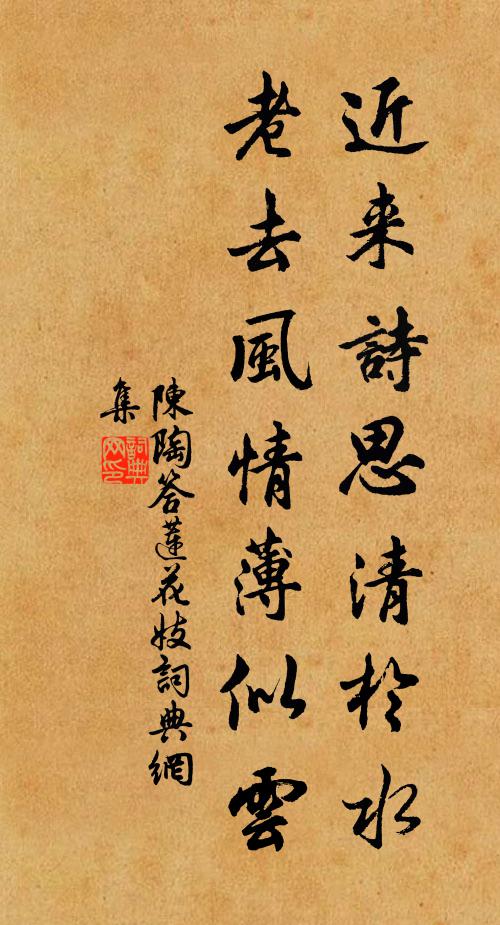 近来詩思清於水
老去風情薄似雲
陳陶答蓮花妓詞典網
集
詞典網印